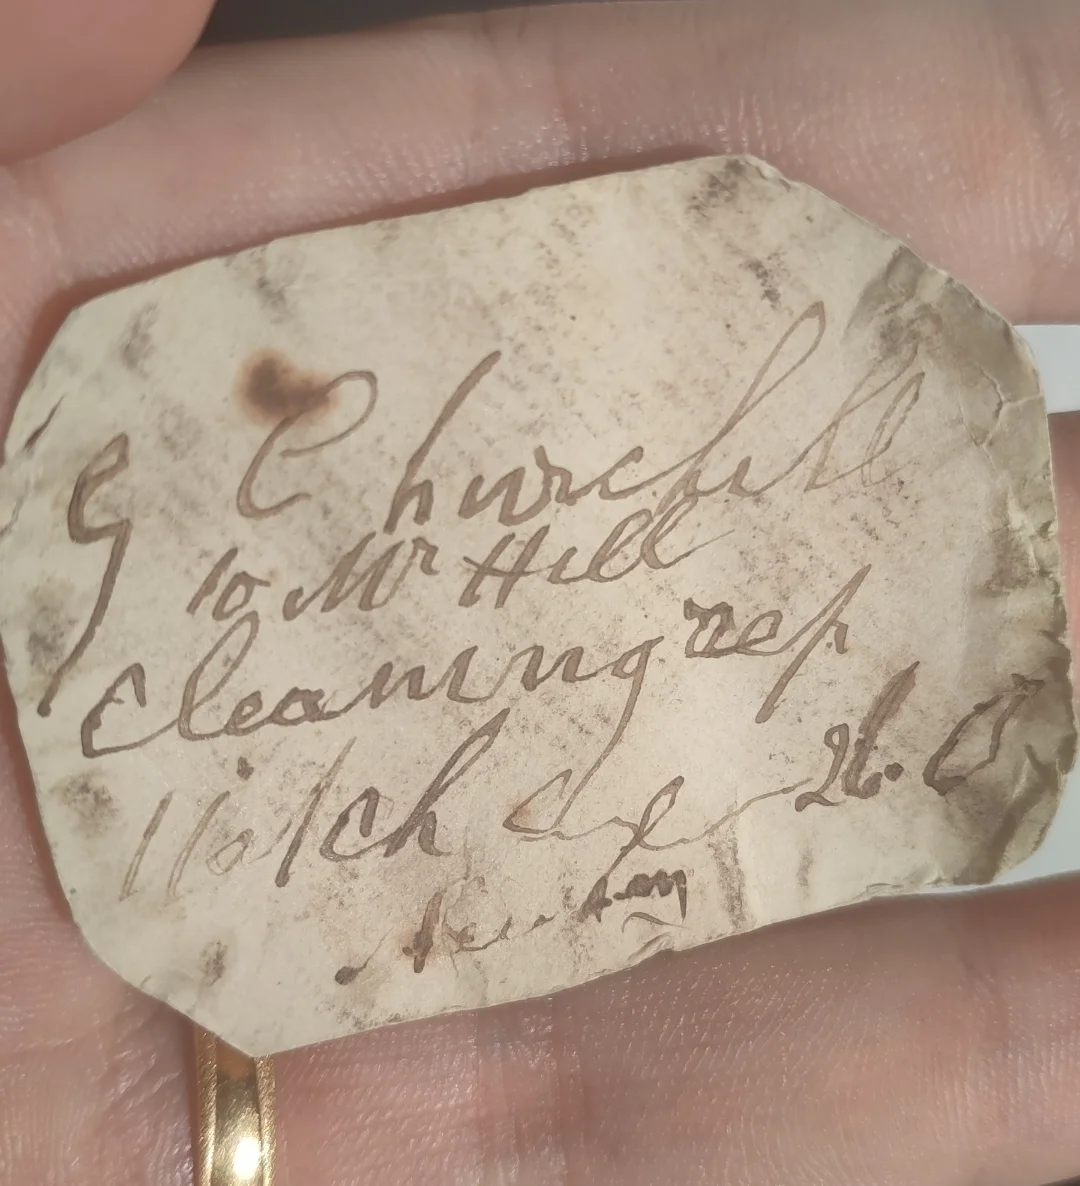 G Churchill
to Mr Hill
Cleaning rep
Watch 26. 0
Newbury